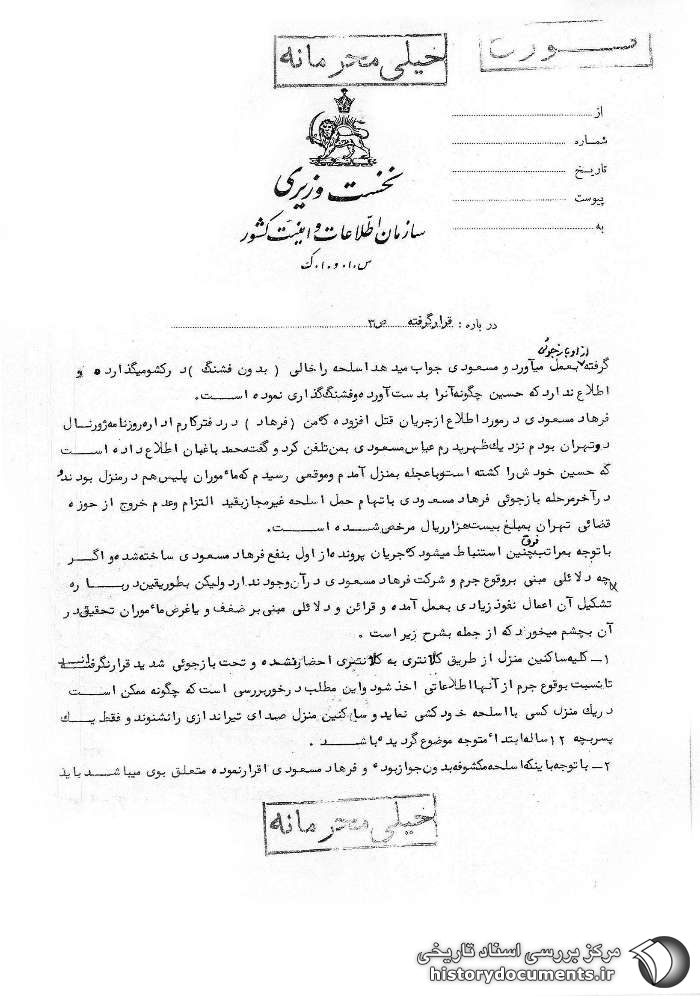 خیلی محرمانه
از
شماره
تاریخ
پیوست
به
نخست وزیری
سازمان اطلاعات و امنیت کشور
س.ا.و.ا.ک
درباره : قرارگرفته ص۳
از او بازجوئی
گرفته بعمل میآورد و مسعودی جواب میدهد اسلحه را خالی ( بدون فشنگ ) در کشو میگذارده و
اطلاع ندارد که حسین چگونه آنرا بدست آورده و فشنگ گذاری نموده است.
فرهاد مسعودی در مورد اطلاع از جریان قتل افزوده که من ( فرهاد ) در دفتر کارم اداره روزنامه ژورنال
دو تهران بودم نزدیک ظهر پدرم عباس مسعودی بمن تلفن کرد و گفت محمد باغبان اطلاع داده است
که حسین خودش را کشته است و با عجله بمنزل آمدم و موقعی رسیدم که مأموران پلیس هم در منزل بودند و
در آخر مرحله بازجوئی فرهاد مسعودی با تهام حمل اسلحه غیر مجاز بقید التزام وعدم خروج از حوزه
قضائی تهران بمبلغ بیست هزار ریال مرخص شده است.
فوق
با توجه بمراتب چنین استنباط میشود که جریان پرونده از اول بنفع فرهاد مسعودی ساخته شده و اگر
چه دلائلی مبنی بر وقوع جرم و شرکت فرهاد مسعودی در آن وجود ندارد ولیکن بطور یقین در باره
تشکیل آن اعمال نفوذ زیادی بعمل آمده و قرائن و دلائلی مبنی بر ضعف و یا غرض مأموران تحقیق در
آن بچشم میخورد که از جمله بشرح زیر است .
۱ــ کلیه ساکنین منزل از طریق کلانتری به کلانتری احضار نشده و تحت بازجوئی شدید قرار نگرفته‌اند
تا نسبت بوقوع جرم از آنها اطلاعاتی اخذ شود و این مطلب در خور بررسی است که چگونه ممکن است
در یک منزل کسی با اسلحه خودکشی نماید و ساکنین منزل صدای تیراندازی را نشنوند و فقط یک
پسر بچه ۱۲ ساله ابتدا متوجه موضوع گردیده باشد .
۲ــ با توجه باینکه اسلحه مکشوفه بدون جواز بوده و فرهاد مسعودی اقرار نموده متعلق بوی میباشد باید
خیلی محرمانه
مرکز بررسی اسناد تاریخی
historydocuments.ir